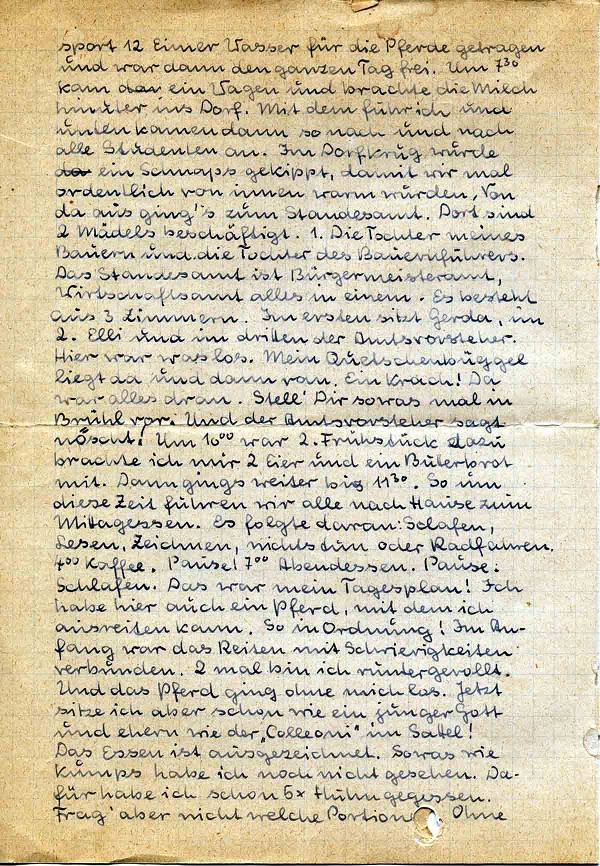 sport 12 Eimer Wasser für die Pferde getragen
und war dann den ganzen Tag frei. Um 7³⁰
kam dav ein Wagen und brachte die Milch
hinunter ins Dorf. Mit dem fuhr ich und
unten kamen dann so nach und nach
alle Studenten an. Im Dorfkrug wurde
da ein Schnaps gekippt, damit wir mal
ordentlich von innen warm wurden, Von
da aus ging's zum Standesamt. Dort sind
2 Mädels beschäftigt. 1. Die Tochter meines
Bauern und die Tochter des Bauernführers.
Das Standesamt ist Bürgermeisteramt,
Wirtschaftsamt alles in einem. Es besteht
aus 3 Zimmern. Im ersten sitzt Gerda, im
2. Elli und im dritten der Amtsvorsteher.
Hier war was los. Mein Quetschenbüggel
liegt da und dann ran. Ein Krach! Da
war alles dran. Stell' Dir sowas mal in
Brühl vor. Und der Amtsvorsteher sagt
nöscht! Um 10⁰⁰ war 2. Frühstück dazu
brachte ich mir 2 Eier und ein Buterbrot
mit. Dann gings weiter bis 11³⁰. So um
diese Zeit fuhren wir alle nach Hause zum
Mittagessen. Es folgte daran: Schlafen,
Lesen, Zeichnen, nichtstun oder Radfahren.
4⁰⁰ Kaffee. Pause! 7⁰⁰ Abendessen. Pause:
Schlafen. Das war mein Tagesplan! Ich
habe hier auch ein Pferd, mit dem ich
ausreiten kann. So in Ordnung! Im An-
fang war das Reiten mit Schwierigkeiten
verbunden. 2 mal bin ich runtergerollt.
Und das Pferd ging ohne mich los. Jetzt
sitze ich aber schon wie ein junger Gott
und ehern wie der „Colleoni" im Satel!
Das Essen ist ausgezeichnet. Sowas wie
Kumps habe ich noch nicht gesehen. Da-
für habe ich schon 5x Huhn gegessen.
Frag' aber nicht welche Portion Ohne